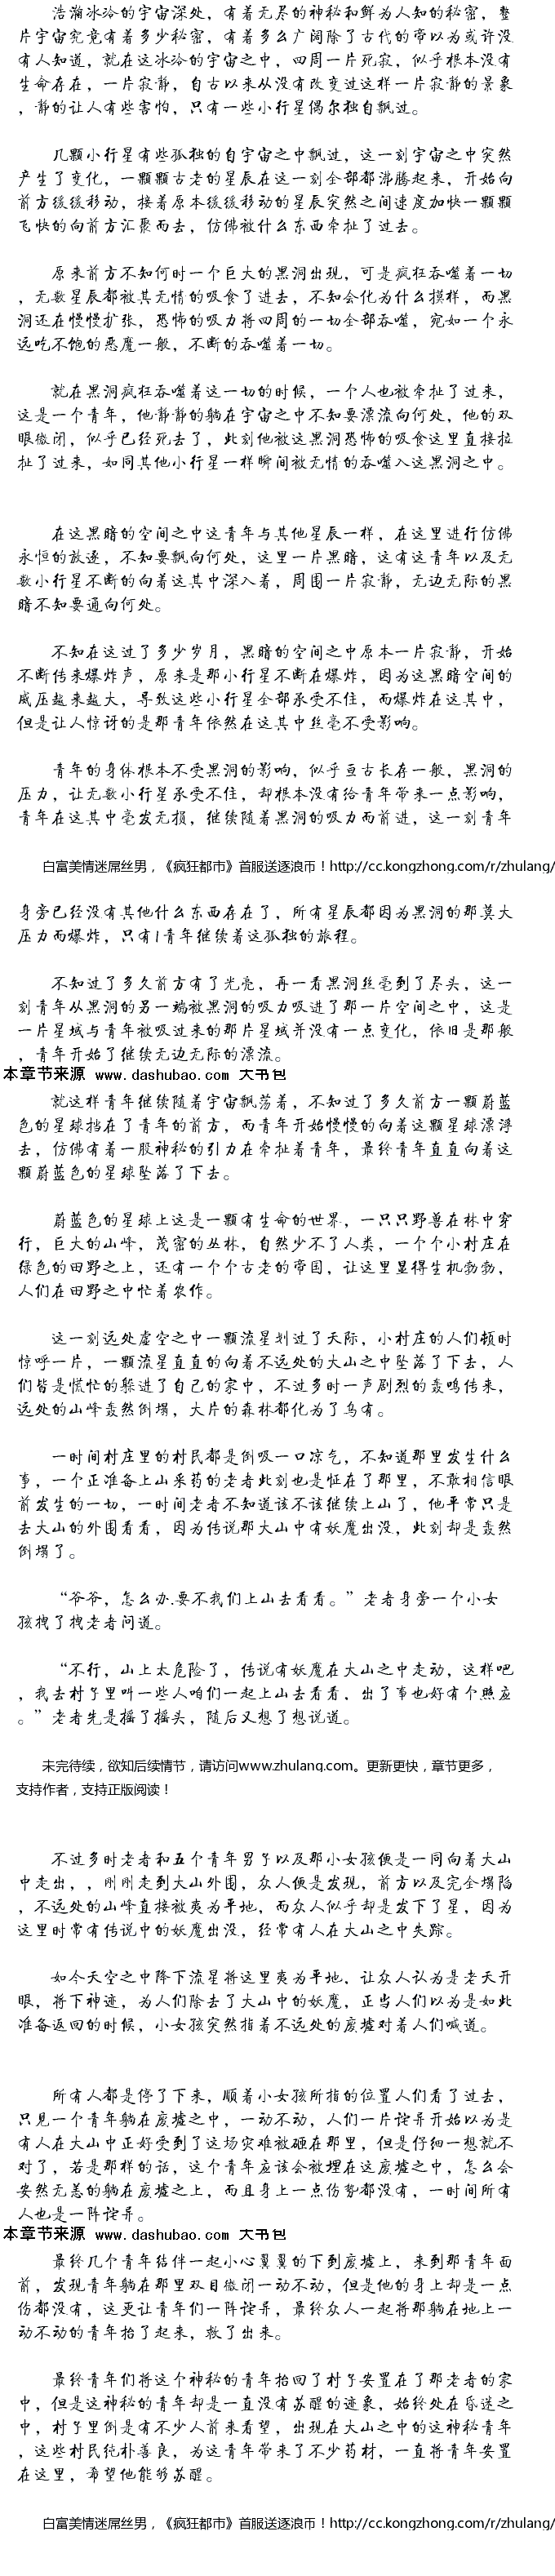 浩瀚冰冷的宇宙深处，有着无尽的神秘和鲜为人知的秘密，整
片宇宙究竟有着多少秘密，有着多么广阔除了古代的帝以为或许没
有人知道，就在这冰冷的宇宙之中，四周一片死寂，似乎根本没有
生命存在，一片寂静，自古以来从没有改变过这样一片寂静的景象
，静的让人有些害怕，只有一些小行星偶尔独自飘过。
几颗小行星有些孤独的自宇宙之中飘过，这一刻宇宙之中突然
产生了变化，一颗颗古老的星辰在这一刻全部都沸腾起来，开始向
前方缓缓移动，接着原本缓缓移动的星辰突然之间速度加快一颗颗
飞快的向前方汇聚而去，仿佛被什么东西牵扯了过去。
原来前方不知何时一个巨大的黑洞出现，可是疯狂吞噬着一切
，无数星辰都被其无情的吸食了进去，不知会化为什么摸样，而黑
洞还在慢慢扩张，恐怖的吸力将四周的一切全部吞噬，宛如一个永
远吃不饱的恶魔一般，不断的吞噬着一切。
就在黑洞疯狂吞噬着这一切的时候，一个人也被牵扯了过来，
这是一个青年，他静静的躺在宇宙之中不知要漂流向何处，他的双
眼微闭，似乎已经死去了，此刻他被这黑洞恐怖的吸食这里直接拉
扯了过来，如同其他小行星一样瞬间被无情的吞噬入这黑洞之中。
在这黑暗的空间之中这青年与其他星辰一样，在这里进行仿佛
永恒的放逐，不知要飘向何处，这里一片黑暗，这有这青年以及无
数小行星不断的向着这其中深入着，周围一片寂静，无边无际的黑
暗不知要通向何处。
不知在这过了多少岁月，黑暗的空间之中原本一片寂静，开始
不断传来爆炸声，原来是那小行星不断在爆炸，因为这黑暗空间的
威压越来越大，导致这些小行星全部承受不住，而爆炸在这其中，
但是让人惊讶的是那青年依然在这其中丝毫不受影响。
青年的身体根本不受黑洞的影响，似乎亘古长存一般，黑洞的
压力，让无数小行星承受不住，却根本没有给青年带来一点影响，
青年在这其中毫发无损，继续随着黑洞的吸力而前进，这一刻青年
白富美情迷屌丝男，《疯狂都市》首服送逐浪币！http://cc.kongzhong.com/r/zhulang/
身旁已经没有其他什么东西存在了，所有星辰都因为黑洞的那莫大
压力而爆炸，只有1青年继续着这孤独的旅程。
不知过了多久前方有了光亮，再一看黑洞丝毫到了尽头，这一
刻青年从黑洞的另一端被黑洞的吸力吸进了那一片空间之中，这是
一片星域与青年被吸过来的那片星域并没有一点变化，依旧是那般
，青年开始了继续无边无际的漂流。
本章节来源 www.dashubao.com 大书包
就这样青年继续随着宇宙飘荡着，不知过了多久前方一颗蔚蓝
色的星球挡在了青年的前方，而青年开始慢慢的向着这颗星球漂浮
去，仿佛有着一股神秘的引力在牵扯着青年，最终青年直直向着这
颗蔚蓝色的星球坠落了下去。
蔚蓝色的星球上这是一颗有生命的世界，一只只野兽在林中穿
行，巨大的山峰，茂密的丛林，自然少不了人类，一个个小村庄在
绿色的田野之上，还有一个个古老的帝国，让这里显得生机勃勃，
人们在田野之中忙着农作。
这一刻远处虚空之中一颗流星划过了天际，小村庄的人们顿时
惊呼一片，一颗流星直直的向着不远处的大山之中坠落了下去，人
们皆是慌忙的躲进了自己的家中，不过多时一声剧烈的轰鸣传来，
远处的山峰轰然倒塌，大片的森林都化为了乌有。
一时间村庄里的村民都是倒吸一口凉气，不知道那里发生什么
事，一个正准备上山采药的老者此刻也是怔在了那里，不敢相信眼
前发生的一切，一时间老者不知道该不该继续上山了，他平常只是
去大山的外围看看，因为传说那大山中有妖魔出没，此刻却是轰然
倒塌了。
“爷爷，怎么办.要不我们上山去看看。”老者身旁一个小女
孩拽了拽老者问道。
“不行，山上太危险了，传说有妖魔在大山之中走动，这样吧
，我去村子里叫一些人咱们一起上山去看看，出了事也好有个照应
。”老者先是摇了摇头，随后又想了想说道。
未完待续，欲知后续情节，请访问www.zhulang.com。更新更快，章节更多，
支持作者，支持正版阅读！
不过多时老者和五个青年男子以及那小女孩便是一同向着大山
中走出，，刚刚走到大山外围，众人便是发现，前方以及完全塌陷
，不远处的山峰直接被夷为平地，而众人似乎却是发下了星，因为
这里时常有传说中的妖魔出没，经常有人在大山之中失踪。
如今天空之中降下流星将这里夷为平地，让众人认为是老天开
眼，将下神迹，为人们除去了大山中的妖魔，正当人们以为是如此
准备返回的时候，小女孩突然指着不远处的废墟对着人们喊道。
所有人都是停了下来，顺着小女孩所指的位置人们看了过去，
只见一个青年躺在废墟之中，一动不动，人们一片诧异开始以为是
有人在大山中正好受到了这场灾难被砸在那里，但是仔细一想就不
对了，若是那样的话，这个青年应该会被埋在这废墟之中，怎么会
安然无恙的躺在废墟之上，而且身上一点伤势都没有，一时间所有
人也是一阵诧异。
本章节来源 www.dashubao.com 大书包
最终几个青年结伴一起小心翼翼的下到废墟上，来到那青年面
前，发现青年躺在那里双目微闭一动不动，但是他的身上却是一点
伤都没有，这更让青年们一阵诧异，最终众人一起将那躺在地上一
动不动的青年抬了起来，救了出来。
最终青年们将这个神秘的青年抬回了村子安置在了那老者的家
中，但是这神秘的青年却是一直没有苏醒的迹象，始终处在昏迷之
中，村子里倒是有不少人前来看望，出现在大山之中的这神秘青年
，这些村民纯朴善良，为这青年带来了不少药材，一直将青年安置
在这里，希望他能够苏醒。
白富美情迷屌丝男，《疯狂都市》首服送逐浪币！http://cc.kongzhong.com/r/zhulang/